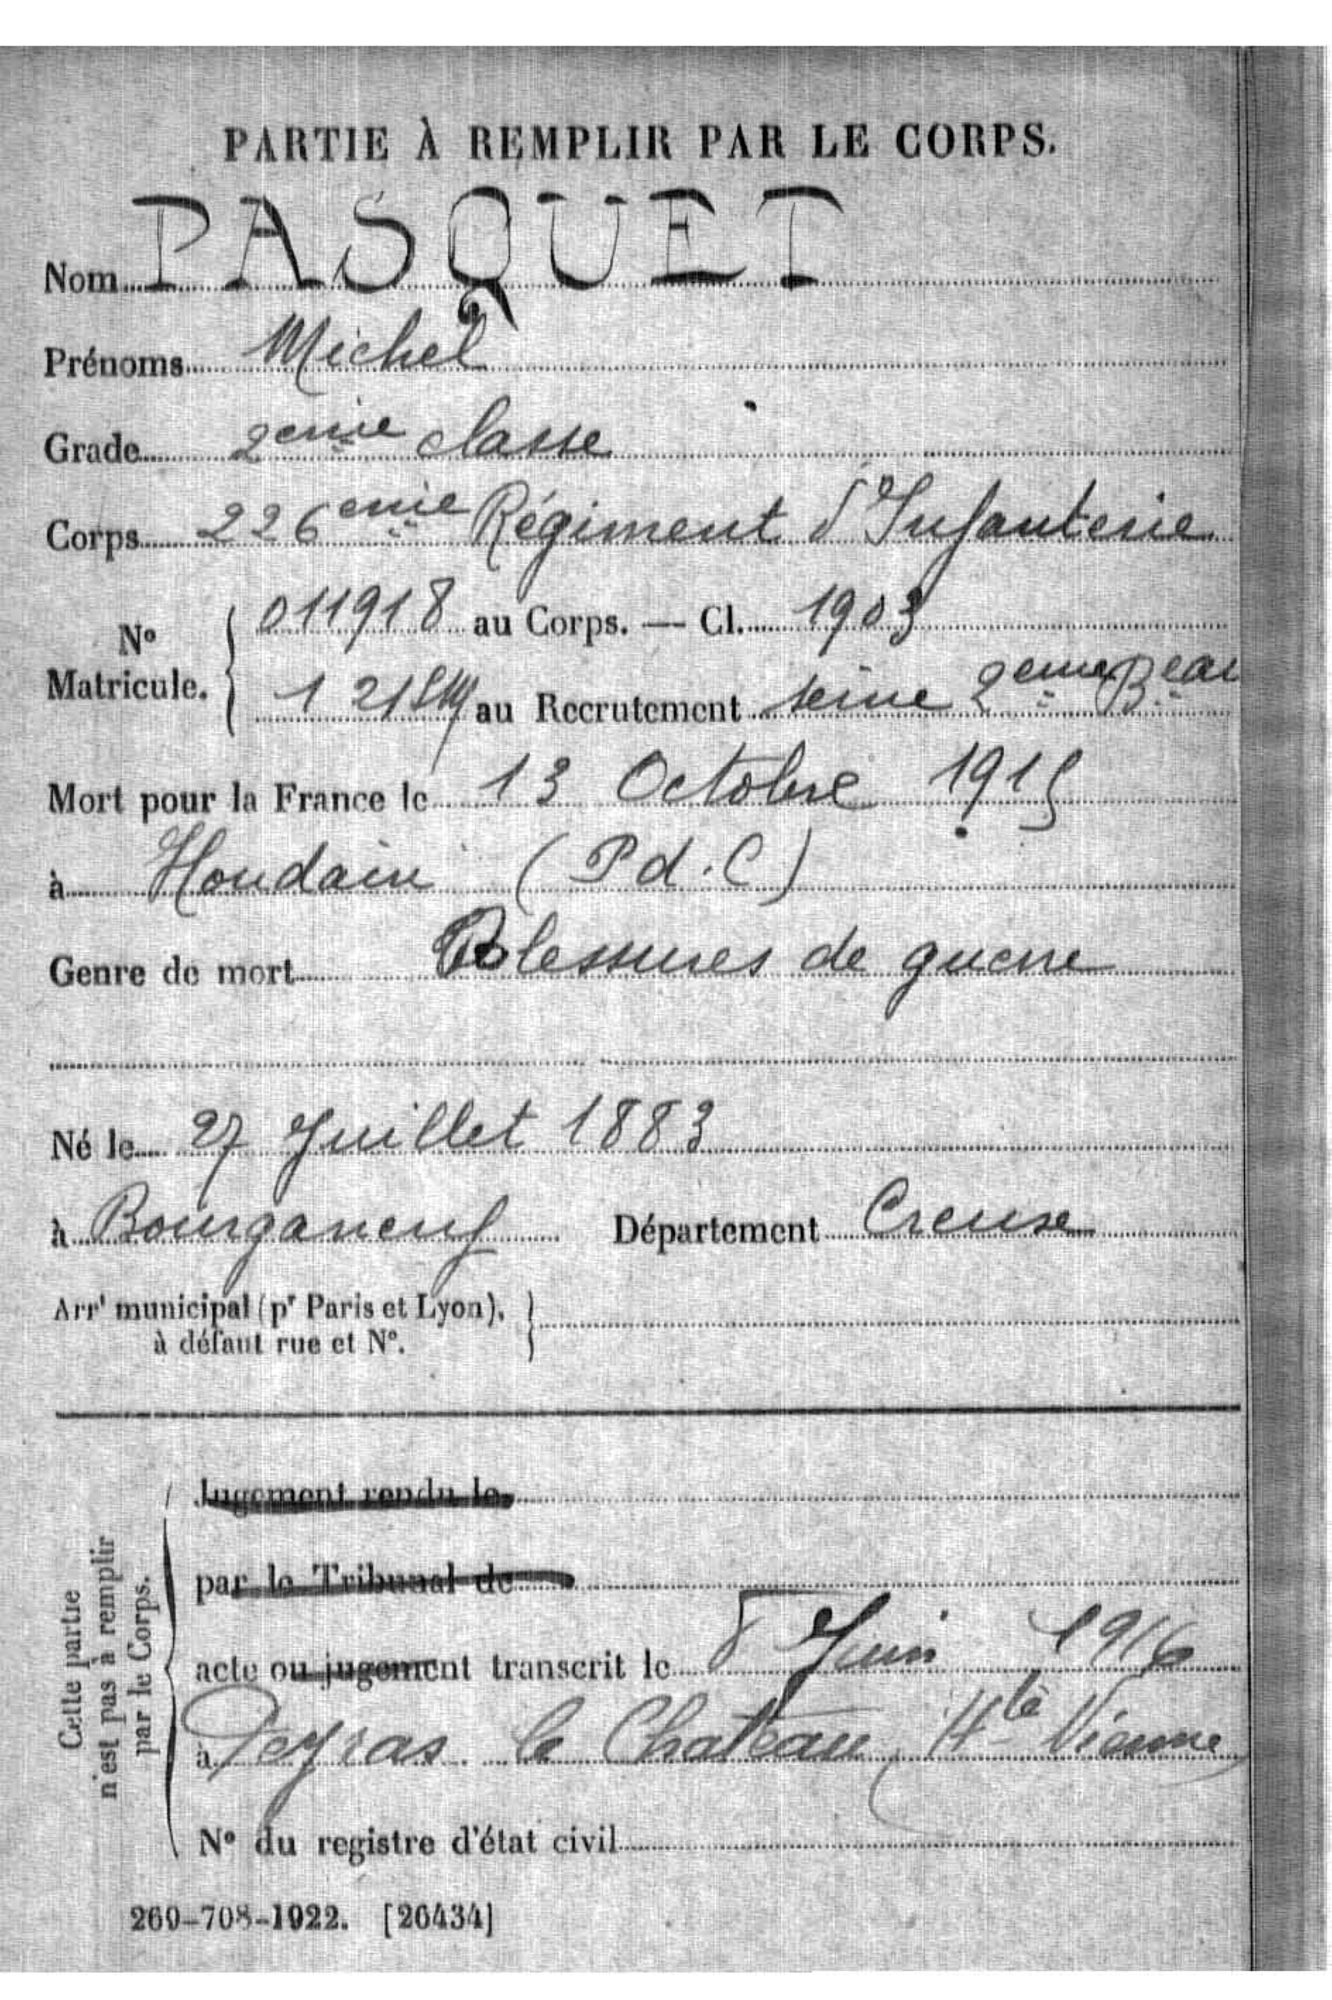 PARTIE À REMPLIR PAR LE CORPS.
Nom PASQUET
Prénoms Michel
Grade 2eme classe
Corps 226eme Régiment d'Infanterie
N° Matricule. { 011918 au Corps. — Cl. 1903
au Recrutement Seine 2eme Beau
Mort pour la France le 13 Octobre 1915
à Houdain (P d. C)
Genre de mort Blessures de guerre
Né le 27 Juillet 1883
à Bourganeuf Département Creuse
Arrt municipal (pr Paris et Lyon),
à défaut rue et N°.
Cette partie
n'est pas à remplir
par le Corps.
Jugement rendu le
par le Tribunal de
acte ou jugement transcrit le 8 Juin 1916
à Peyras le Chateau, Hte Vienne
N° du registre d'état civil
260-708-1922. [26434]